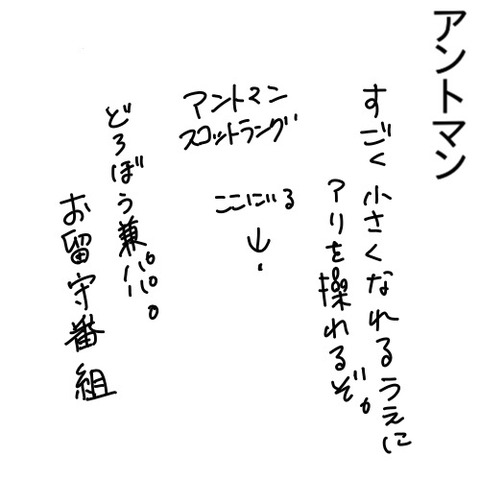 アントマン
すごく小さくなれるうえに
アリを操れるぞ。
アントマン
スコットラング
ここにいる
↓
どろぼう兼パパ。
お留守番組